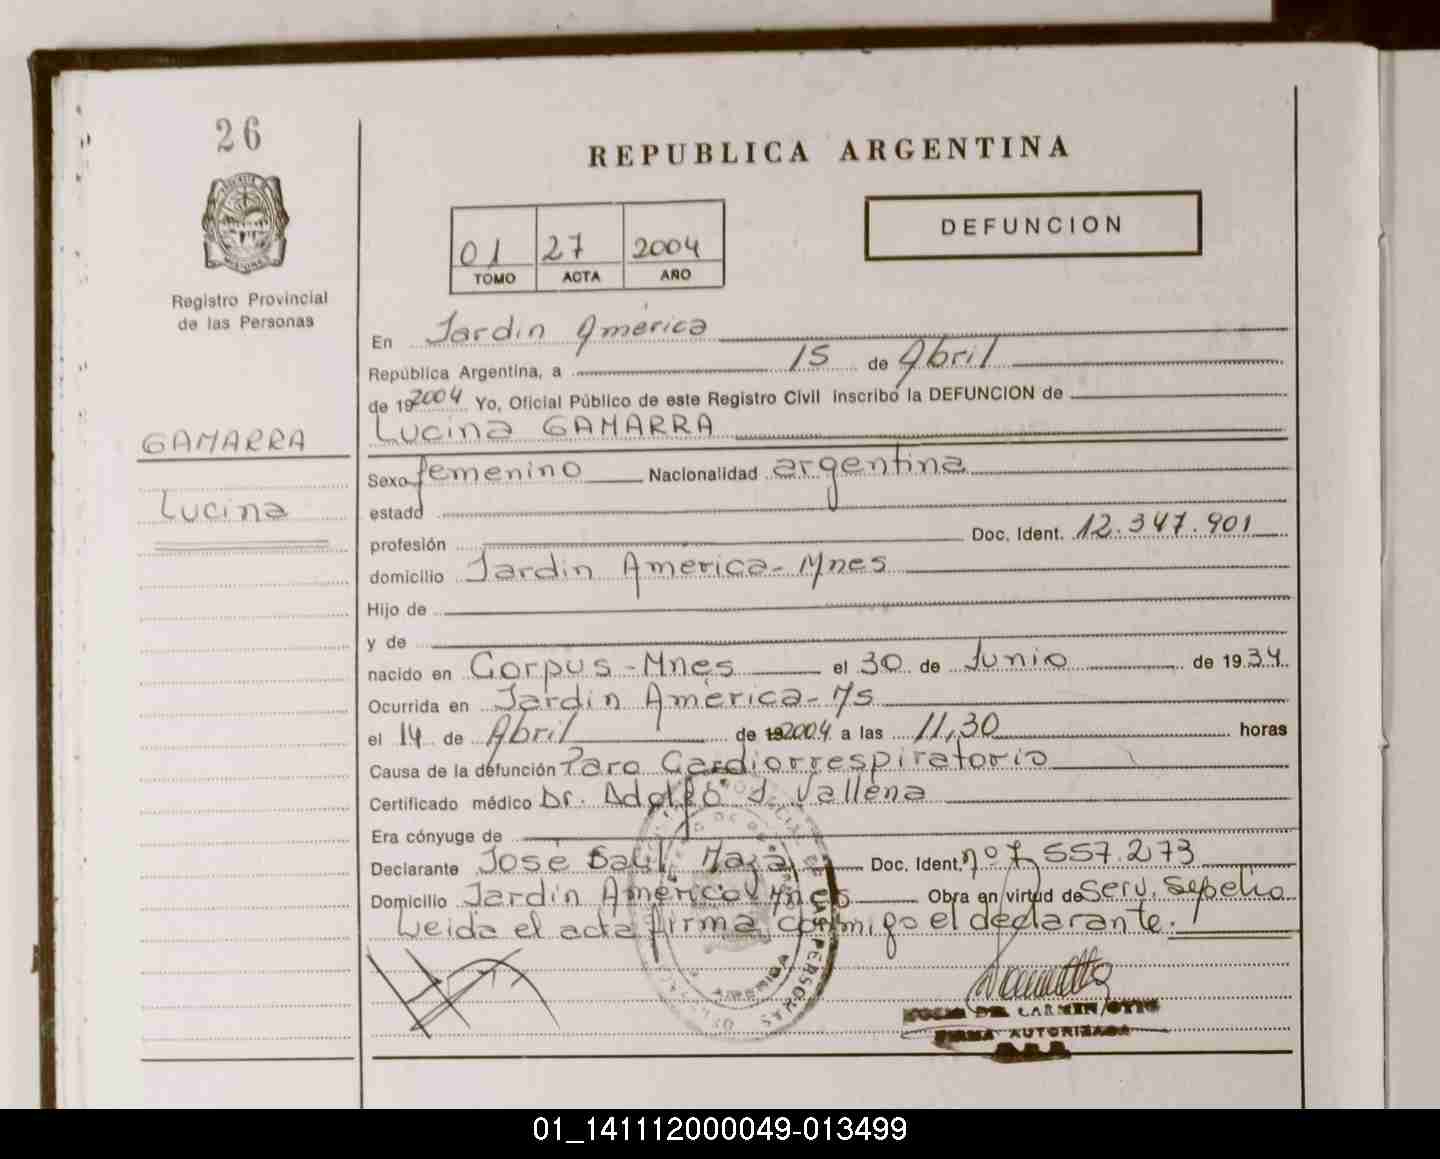 26
REPUBLICA ARGENTINA
01 27 2004
TOMO ACTA AÑO
DEFUNCION
Registro Provincial
de las Personas
En Jardin América
República Argentina, a 15 de Abril
de 192004 Yo, Oficial Público de este Registro Civil inscribo la DEFUNCION de
GAMARRA
Lucina GAMARRA
Sexo femenino Nacionalidad argentina
Lucina
estado
profesión Doc. Ident. 12.347.901
domicilio Jardin America - Mnes
Hijo de
y de
nacido en Corpus - Mnes el 30 de Junio de 1934.
Ocurrida en Jardin América - Ms
el 14 de Abril de 192004 a las 11,30 horas
Causa de la defunción Paro Cardiorrespiratorio
Certificado médico Dr. Adolfo J. Vallena
Era cónyuge de
Declarante José Saúl Maza Doc. Ident. nº 7.557.273
Domicilio Jardin América Mnes Obra en virtud de Serv. Sepelio
Leida el acta firma conmigo el declarante.
DE LAS PERSONAS
AMERICA
DEL CARMEN
FIRMA AUTORIZADA
01_141112000049-013499